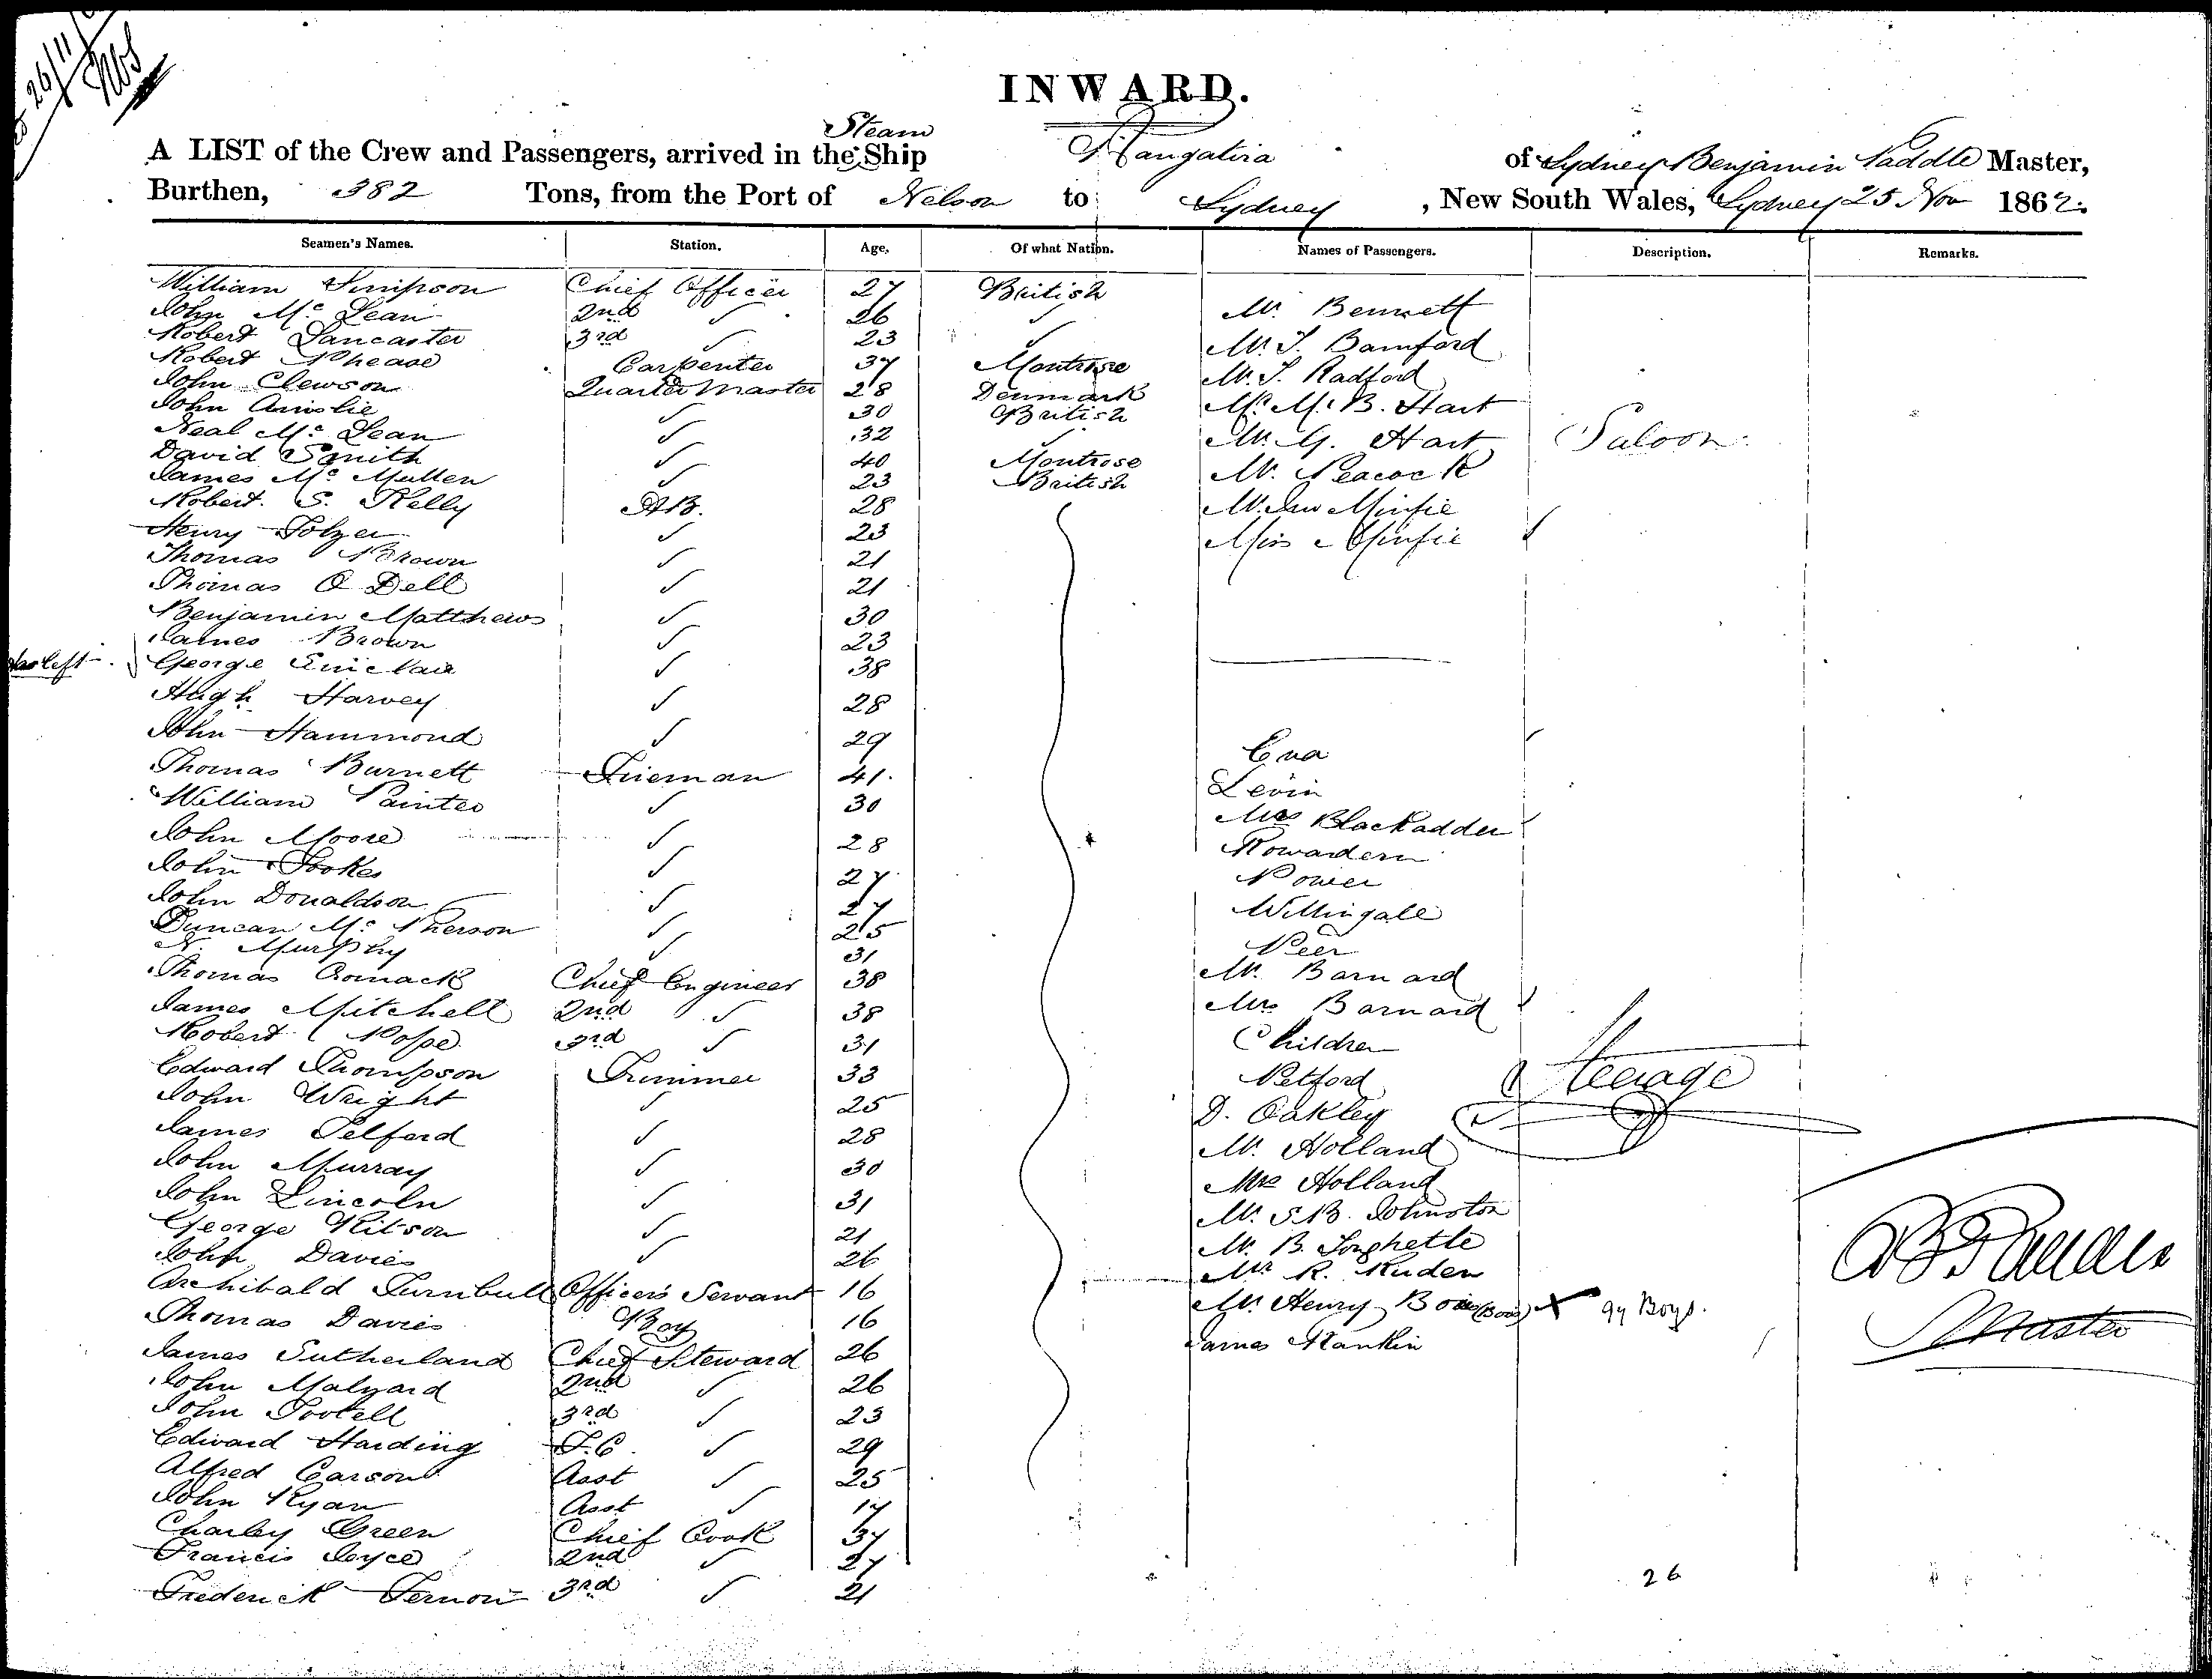 26/11
INWARD.
Steam
A LIST of the Crew and Passengers, arrived in the Ship Rangatira of Sydney Benjamin Saddle Master,
Burthen, 382 Tons, from the Port of Nelson to Sydney, New South Wales, Sydney 25 Nov 1862.
Seamen's Names. Station. Age, Of what Nation. Names of Passengers. Description. Remarks.
William Simpson Chief Officer 27 British
Mr. Bennett
John Mc Lean 2nd ✓ 26 ✓
Robert Lancaster 3rd ✓ 23 ✓
Mr. J. Bamford
Robert Carpenter 37 Montrose
Mr. J. Radford
John Clewson Quarter Master 28 Denmark
John Ainslie ✓ 30 British
Mr. M. B. Hart
Neal Mc Lean ✓ 32
Mr. G. Hart Saloon
David Smith ✓ 40 Montrose
James Mc Mullen ✓ 23 British
Mr. Peacock
Robert. S. Kelly AB. 28
Mr. Minfie
Henry Tolzer ✓ 23
Miss Minfie
Thomas Brown ✓ 21
Thomas O Dell ✓ 21
Benjamin Matthews ✓ 30
James Brown ✓ 23
has left George Sinclair ✓ 38
Hugh Harvey ✓ 28
John Hammond ✓ 29
Thomas Burnett Fireman 41.
Levin
William Painter ✓ 30
Mrs Blackadder
John Moore ✓ 28
John Tookes ✓ 27
Power
John Donaldson ✓ 27
Willingale
Duncan Mc Pherson ✓ 25
N. Murphy ✓ 31
Peer
Thomas Comack Chief Engineer 38
Mr. Barnard
James Mitchell 2nd ✓ 38
Mrs Barnard
Robert Pope 3rd ✓ 31
Children
Edward Thompson Trimmer 33
Petford Steerage
John Wright ✓ 25
D. Oakley
James Telford ✓ 28
Mr. Holland
John Murray ✓ 30
Mrs Holland
John Lincoln ✓ 31
Mr. S.B. Johnston
George Kitson ✓ 21
John Davies ✓ 26
Mr. B.
Mr R. Ruden
Archibald Turnbull Officers Servant 16
Mr. Henry 99 Boys.
Thomas Davies Boy 16
Master
James Sutherland Chief Steward 26
James Rankin
John Malyard 2nd ✓ 26
John Tootell 3rd ✓ 23
Edward Harding F.C. ✓ 29
Alfred Carson Asst ✓ 25
John Ryan Asst ✓ 17
Charley Green Chief Cook 37
Francis Joyce 2nd ✓ 27
Frederick Vernon 3rd ✓ 21
26